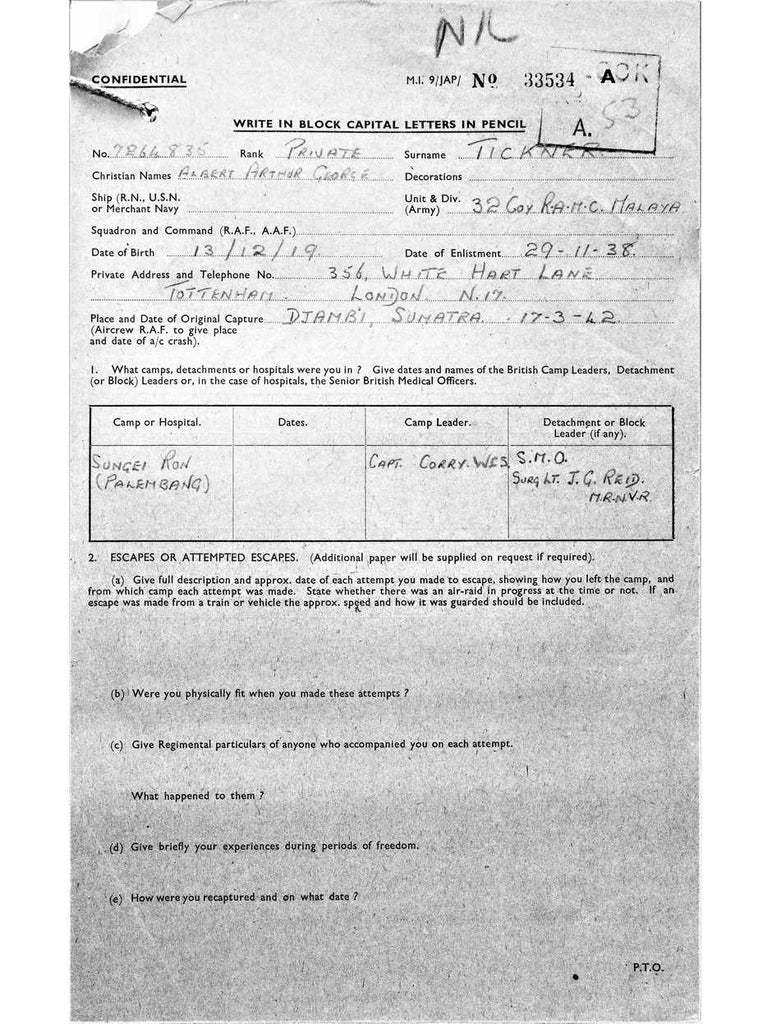 NIL
CONFIDENTIAL
M.I. 9/JAP/ No 33534 A
A. 53
WRITE IN BLOCK CAPITAL LETTERS IN PENCIL
No. 7264835 Rank PRIVATE Surname TICKNER
Christian Names ALBERT ARTHUR GEORGE Decorations
Ship (R.N., U.S.N. or Merchant Navy Unit & Div. (Army) 32 Coy R.A.M.C. MALAYA
Squadron and Command (R.A.F., A.A.F.)
Date of Birth 13/12/19 Date of Enlistment 29-11-38.
Private Address and Telephone No. 356, WHITE HART LANE
TOTTENHAM. LONDON. N.17.
Place and Date of Original Capture DJAMBI, SUMATRA. 17-3-42.
(Aircrew R.A.F. to give place
and date of a/c crash).
1. What camps, detachments or hospitals were you in ? Give dates and names of the British Camp Leaders, Detachment
(or Block) Leaders or, in the case of hospitals, the Senior British Medical Officers.
Camp or Hospital. Dates. Camp Leader. Detachment or Block
Leader (if any).
SUNGEI RON CAPT. CORRY. S.M.O.
(PALEMBANG) SURG LT. J.G. REID.
M.R.N.V.R.
2. ESCAPES OR ATTEMPTED ESCAPES. (Additional paper will be supplied on request if required).
(a) Give full description and approx. date of each attempt you made to escape, showing how you left the camp, and
from which camp each attempt was made. State whether there was an air-raid in progress at the time or not. If an
escape was made from a train or vehicle the approx. speed and how it was guarded should be included.
(b) Were you physically fit when you made these attempts ?
(c) Give Regimental particulars of anyone who accompanied you on each attempt.
What happened to them ?
(d) Give briefly your experiences during periods of freedom.
(e) How were you recaptured and on what date ?
P.T.O.